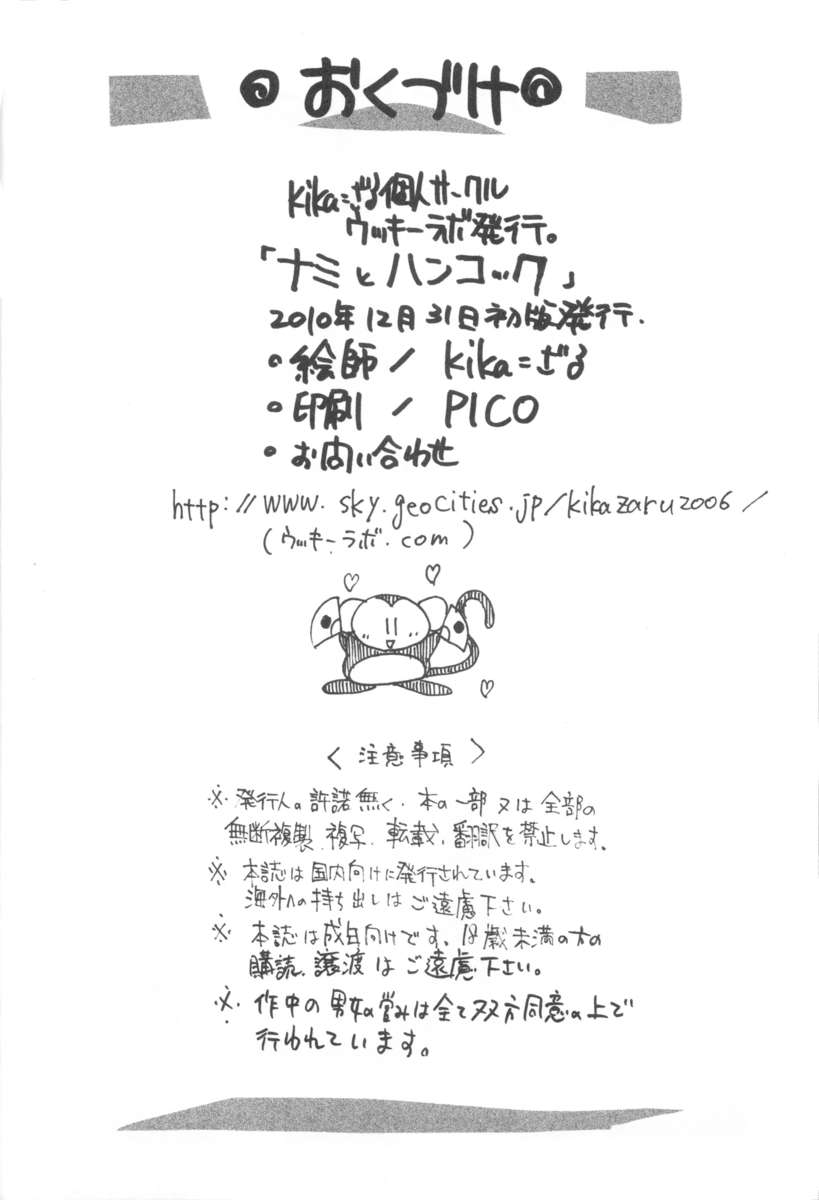 おくづけ
kika=ざる個人サークル
ウッキーラボ発行。
「ナミとハンコック」
2010年12月31日初版発行.
・絵師/kika=ざる
・印刷/PICO
・お問い合わせ
http://www.sky.geocities.jp/kikazaru2006/
(ウッキーラボ.com)
<注意事項>
※発行人の許諾無く、本の一部又は全部の
無断複製、複写、転載、翻訳を禁止します。
※本誌は国内向けに発行されています。
海外への持ち出しはご遠慮下さい。
※本誌は成年向けです、18歳未満の方の
購読、譲渡はご遠慮下さい。
※作中の男女の営みは全て双方同意の上で
行われています。